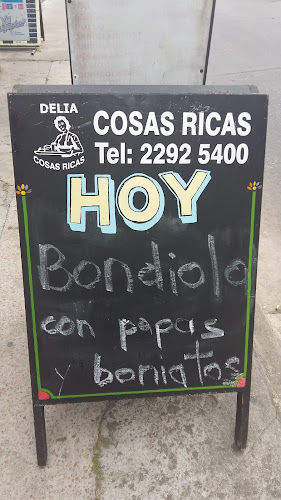 DELIA
COSAS RICAS
COSAS RICAS
Tel: 2292 5400
HOY
Bondiola
con papas
y boniatos